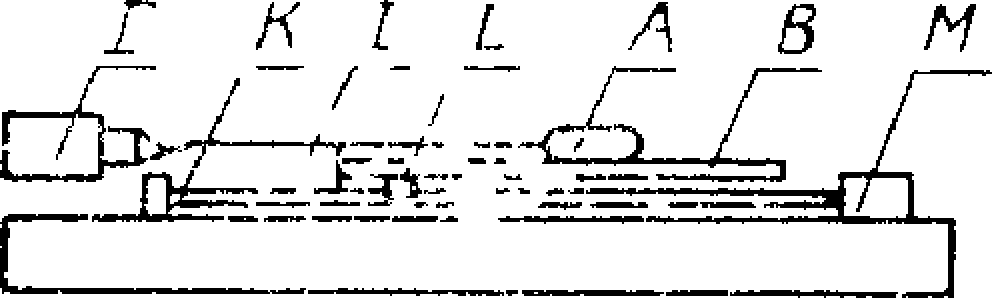 I K I L A B M